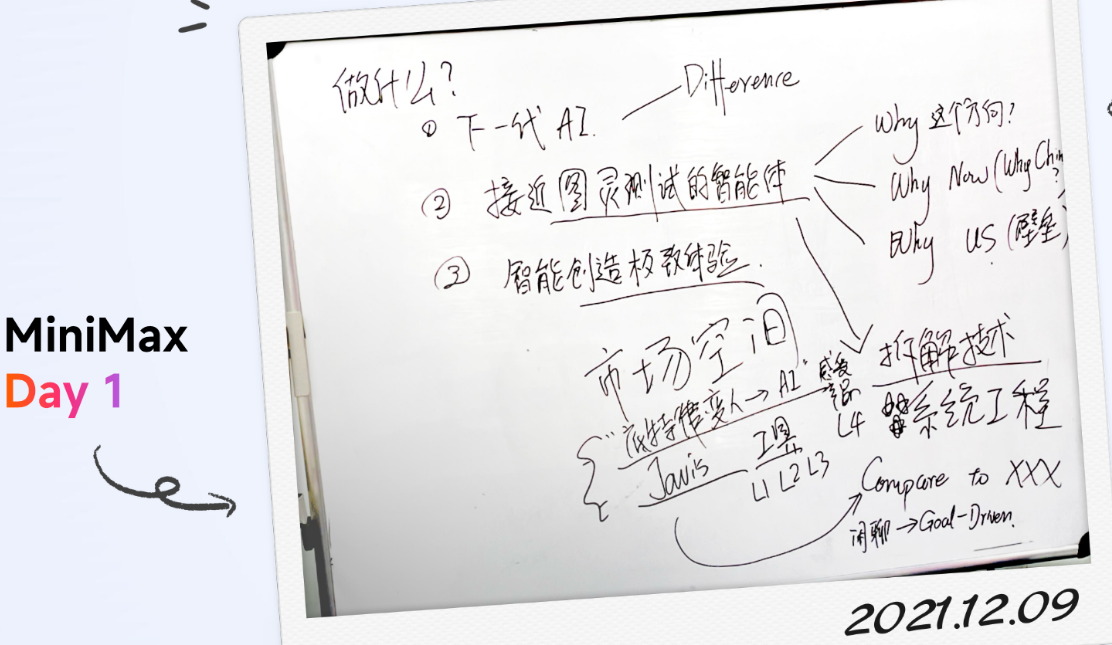 MiniMax
Day 1
做什么?
① 下一代 AI.
Difference
② 接近图灵测试的智能体
Why 这个方向?
Why Now (Why Chin
?
Why US (壁垒)
③ 智能创造极致体验.
市场空间
"底特律变人→AI"
Javis
工具
L1 L2 L3
感受
L4
拆解技术
系统工程
Compare to XXX
闲聊→Goal-Driven.
2021.12.09